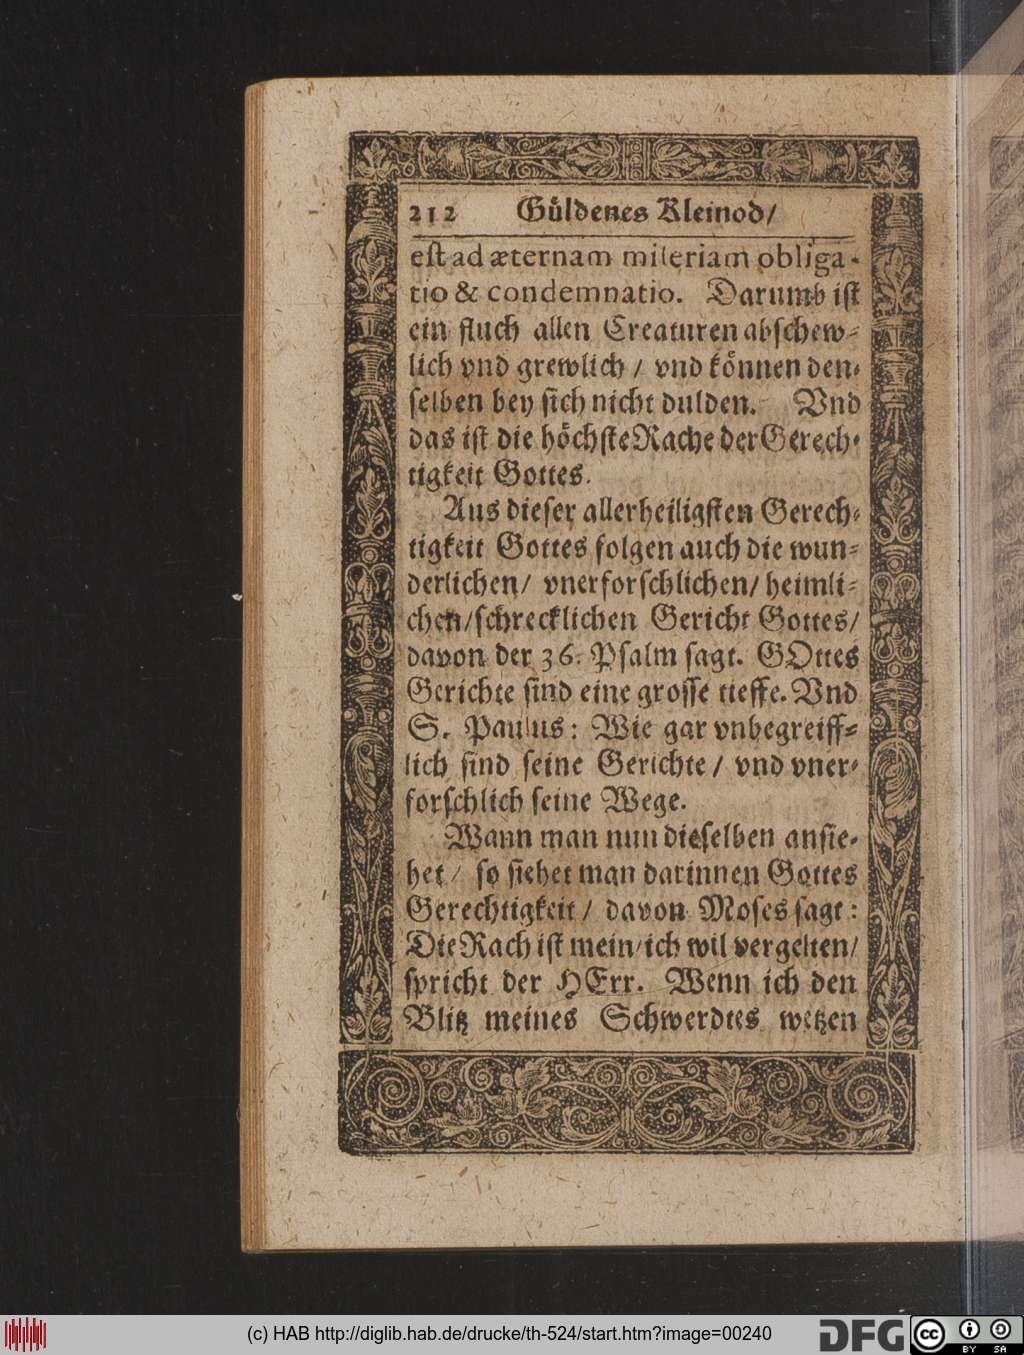 212 Gůldenes Kleinod/
eſt ad æternam miſeriam obliga-
tio & condemnatio. Darumb iſt
ein fluch allen Creaturen abſchew-
lich vnd grewlich / vnd koͤnnen den-
ſelben bey ſich nicht dulden. Vnd
das iſt die hoͤchſte Rache der Gerech-
tigkeit Gottes.
Aus dieſer allerheiligſten Gerech-
tigkeit Gottes folgen auch die wun-
derlichen/ vnerforſchlichen/ heimli-
chen/ ſchrecklichen Gericht Gottes/
davon der 36. Pſalm ſagt. GOttes
Gerichte ſind eine groſſe tieffe. Vnd
S. Paulus: Wie gar vnbegreiff-
lich ſind ſeine Gerichte / vnd vner-
forſchlich ſeine Wege.
Wann man nun dieſelben anſie-
het / ſo ſiehet man darinnen Gottes
Gerechtigkeit / davon Moſes ſagt:
Die Rach iſt mein/ ich wil vergelten/
ſpricht der HErr. Wenn ich den
Blitz meines Schwerdtes wetzen
(c) HAB http://diglib.hab.de/drucke/th-524/start.htm?image=00240
DFG
cc
BY SA